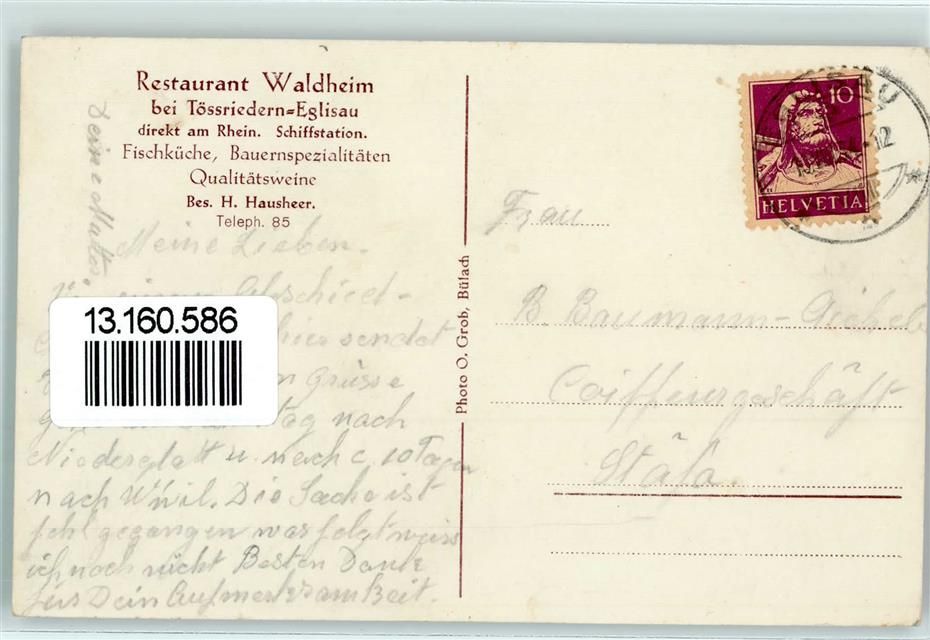 Restaurant Waldheim
bei Tössriedern=Eglisau
direkt am Rhein. Schiffstation.
Fischküche, Bauernspezialitäten
Qualitätsweine
Bes. H. Hausheer.
Teleph. 85
Meine Lieben.
Abschied-
hier sendet
Grüsse
tag nach
Niederglatt u. nach c. 10 Tagen
nach Wwil. Die Sache ist
fehl gegangen was folgt weiss
ich noch nicht Besten Dank
für Dein Aufmerksamkeit.
Deine Mutter.
13.160.586
Photo O. Grob, Bülach
10
HELVETIA
Frau
B. Baumann-
Coiffeurgeschäft
Stäfa.